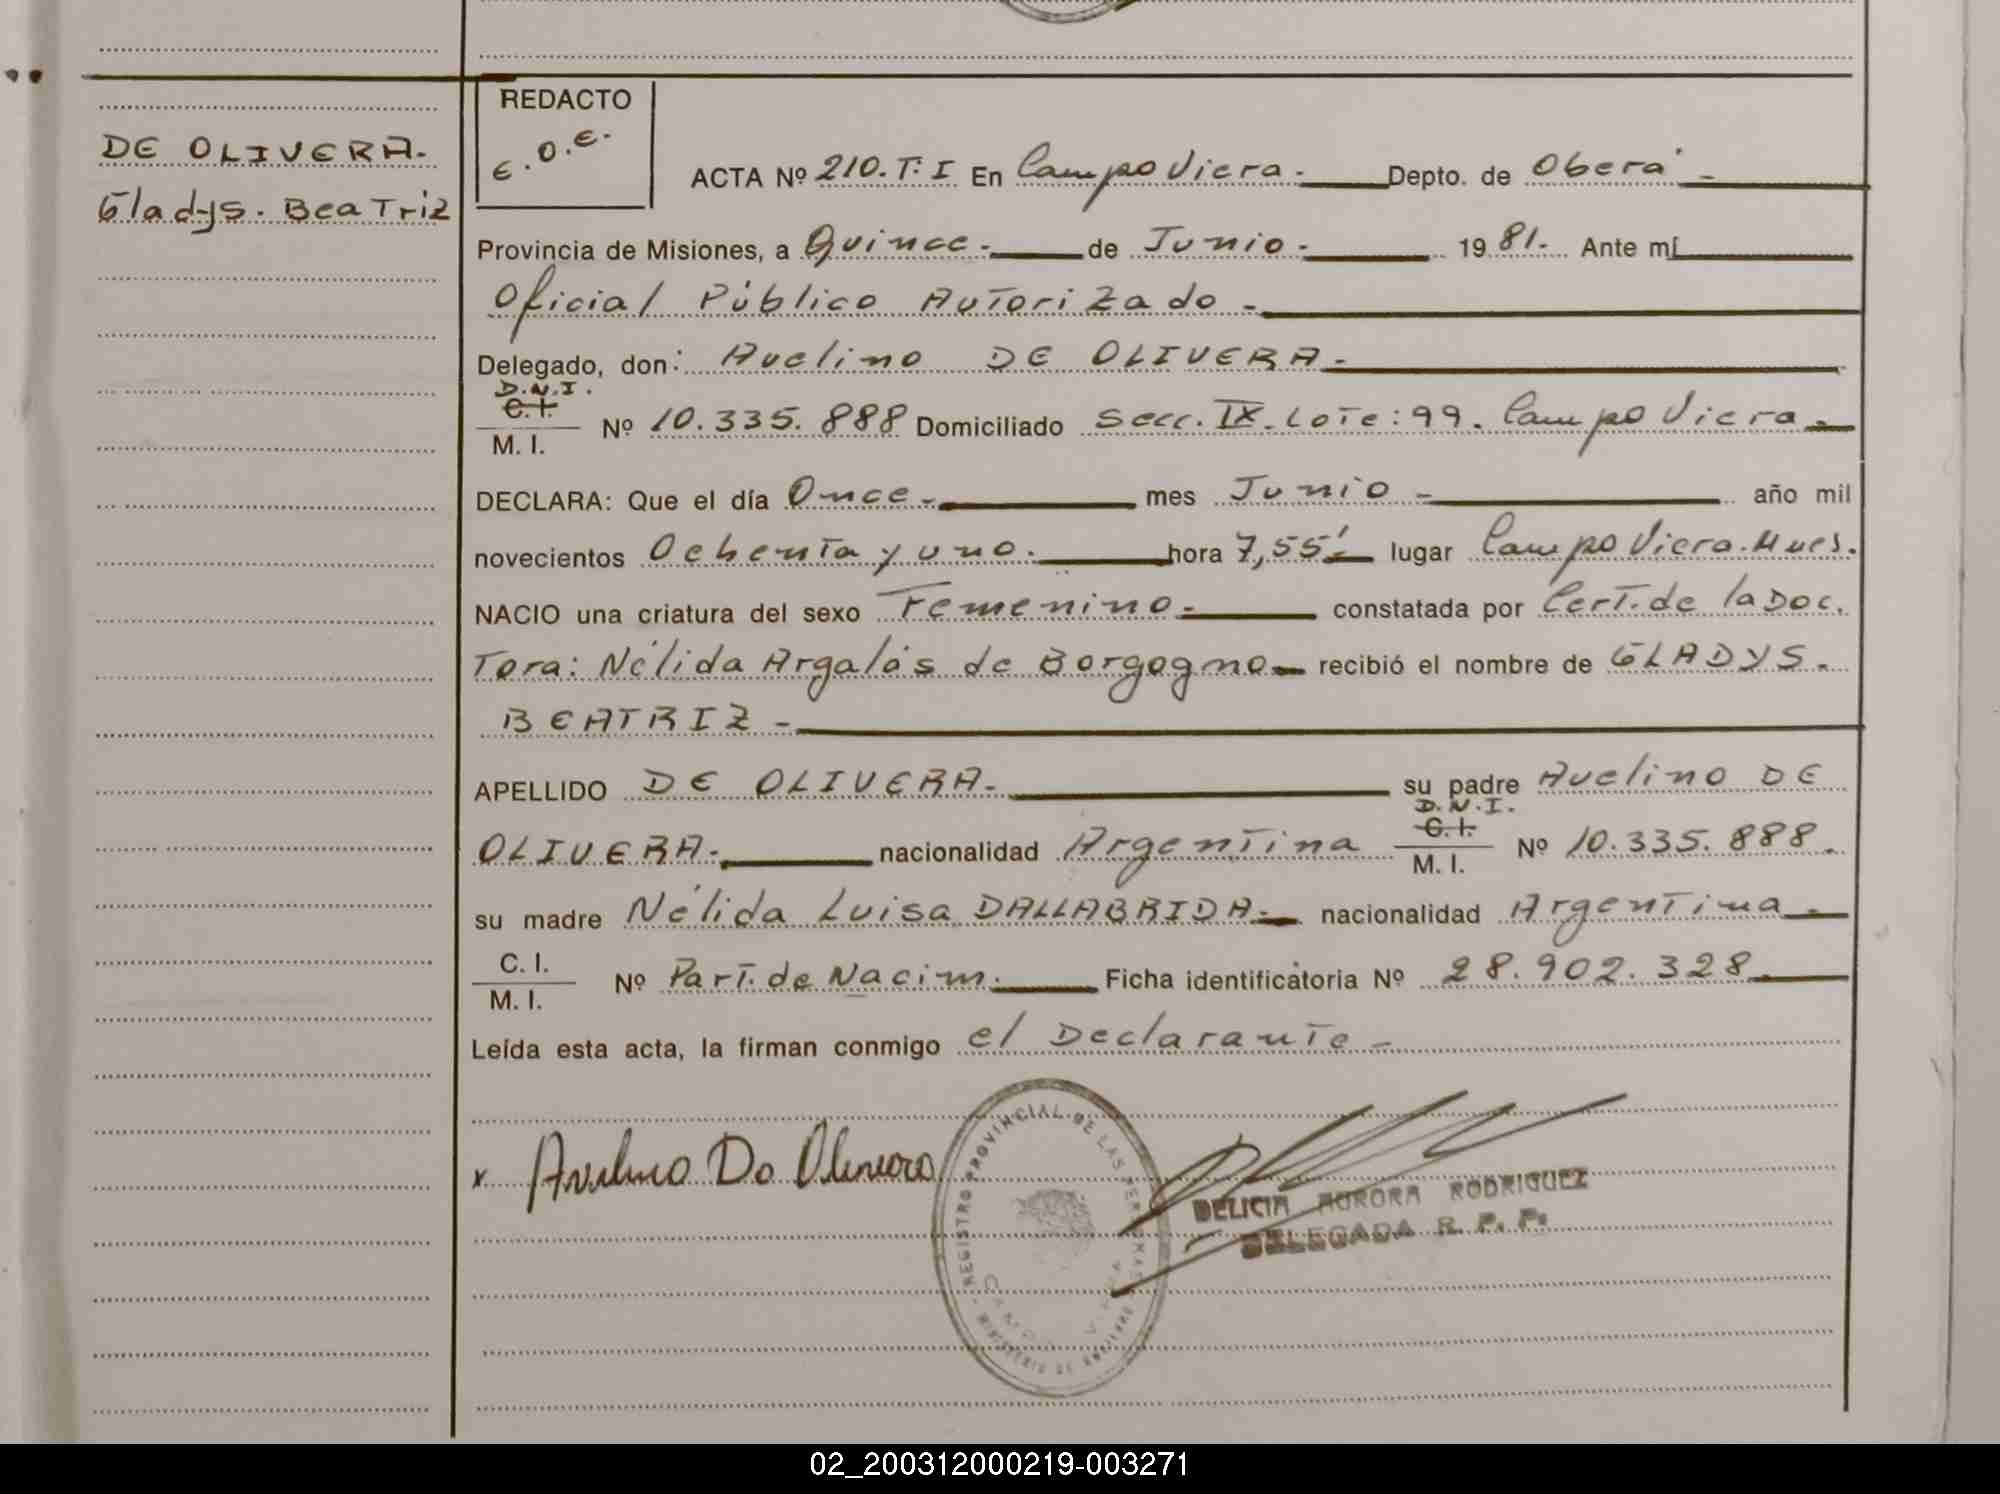 REDACTO
E.O.E.
DE OLIVERA.
Gladys. Beatriz
ACTA Nº 210. T: I En Campo Viera. - Depto. de Oberá -
Provincia de Misiones, a Quince. - de Junio. - 19 81. Ante mí
Oficial Público Autorizado -
Delegado, don: Avelino DE OLIVERA. -
D.N.I.
C. I.
M. I. Nº 10.335.888 Domiciliado Secc. IX. Lote: 99. Campo Viera. -
DECLARA: Que el día Once. - mes Junio - año mil
novecientos Ochenta y uno. - hora 7,55' - lugar Campo Viera. Mnes.
NACIO una criatura del sexo Femenino. - constatada por Cert. de la Doc.
Tora: Nélida Argalás de Borgogno - recibió el nombre de GLADYS.
BEATRIZ -
APELLIDO DE OLIVERA. - su padre Avelino DE
D.N.I.
OLIVERA. - nacionalidad Argentina C. I. Nº 10.335.888.
M. I.
su madre Nélida Luisa DALLABRIDA. - nacionalidad Argentina -
C. I.
M. I. Nº Part. de Nacim. - Ficha identificatoria Nº 28.902.328 -
Leída esta acta, la firman conmigo el Declarante -
x Avelino De Olivera
REGISTRO PROVINCIAL DE LAS PERSONAS
MINISTERIO DE GOBIERNO
CAMPO VIERA
DELICIA AURORA RODRIGUEZ
DELEGADA R. P. P.
02_200312000219-003271